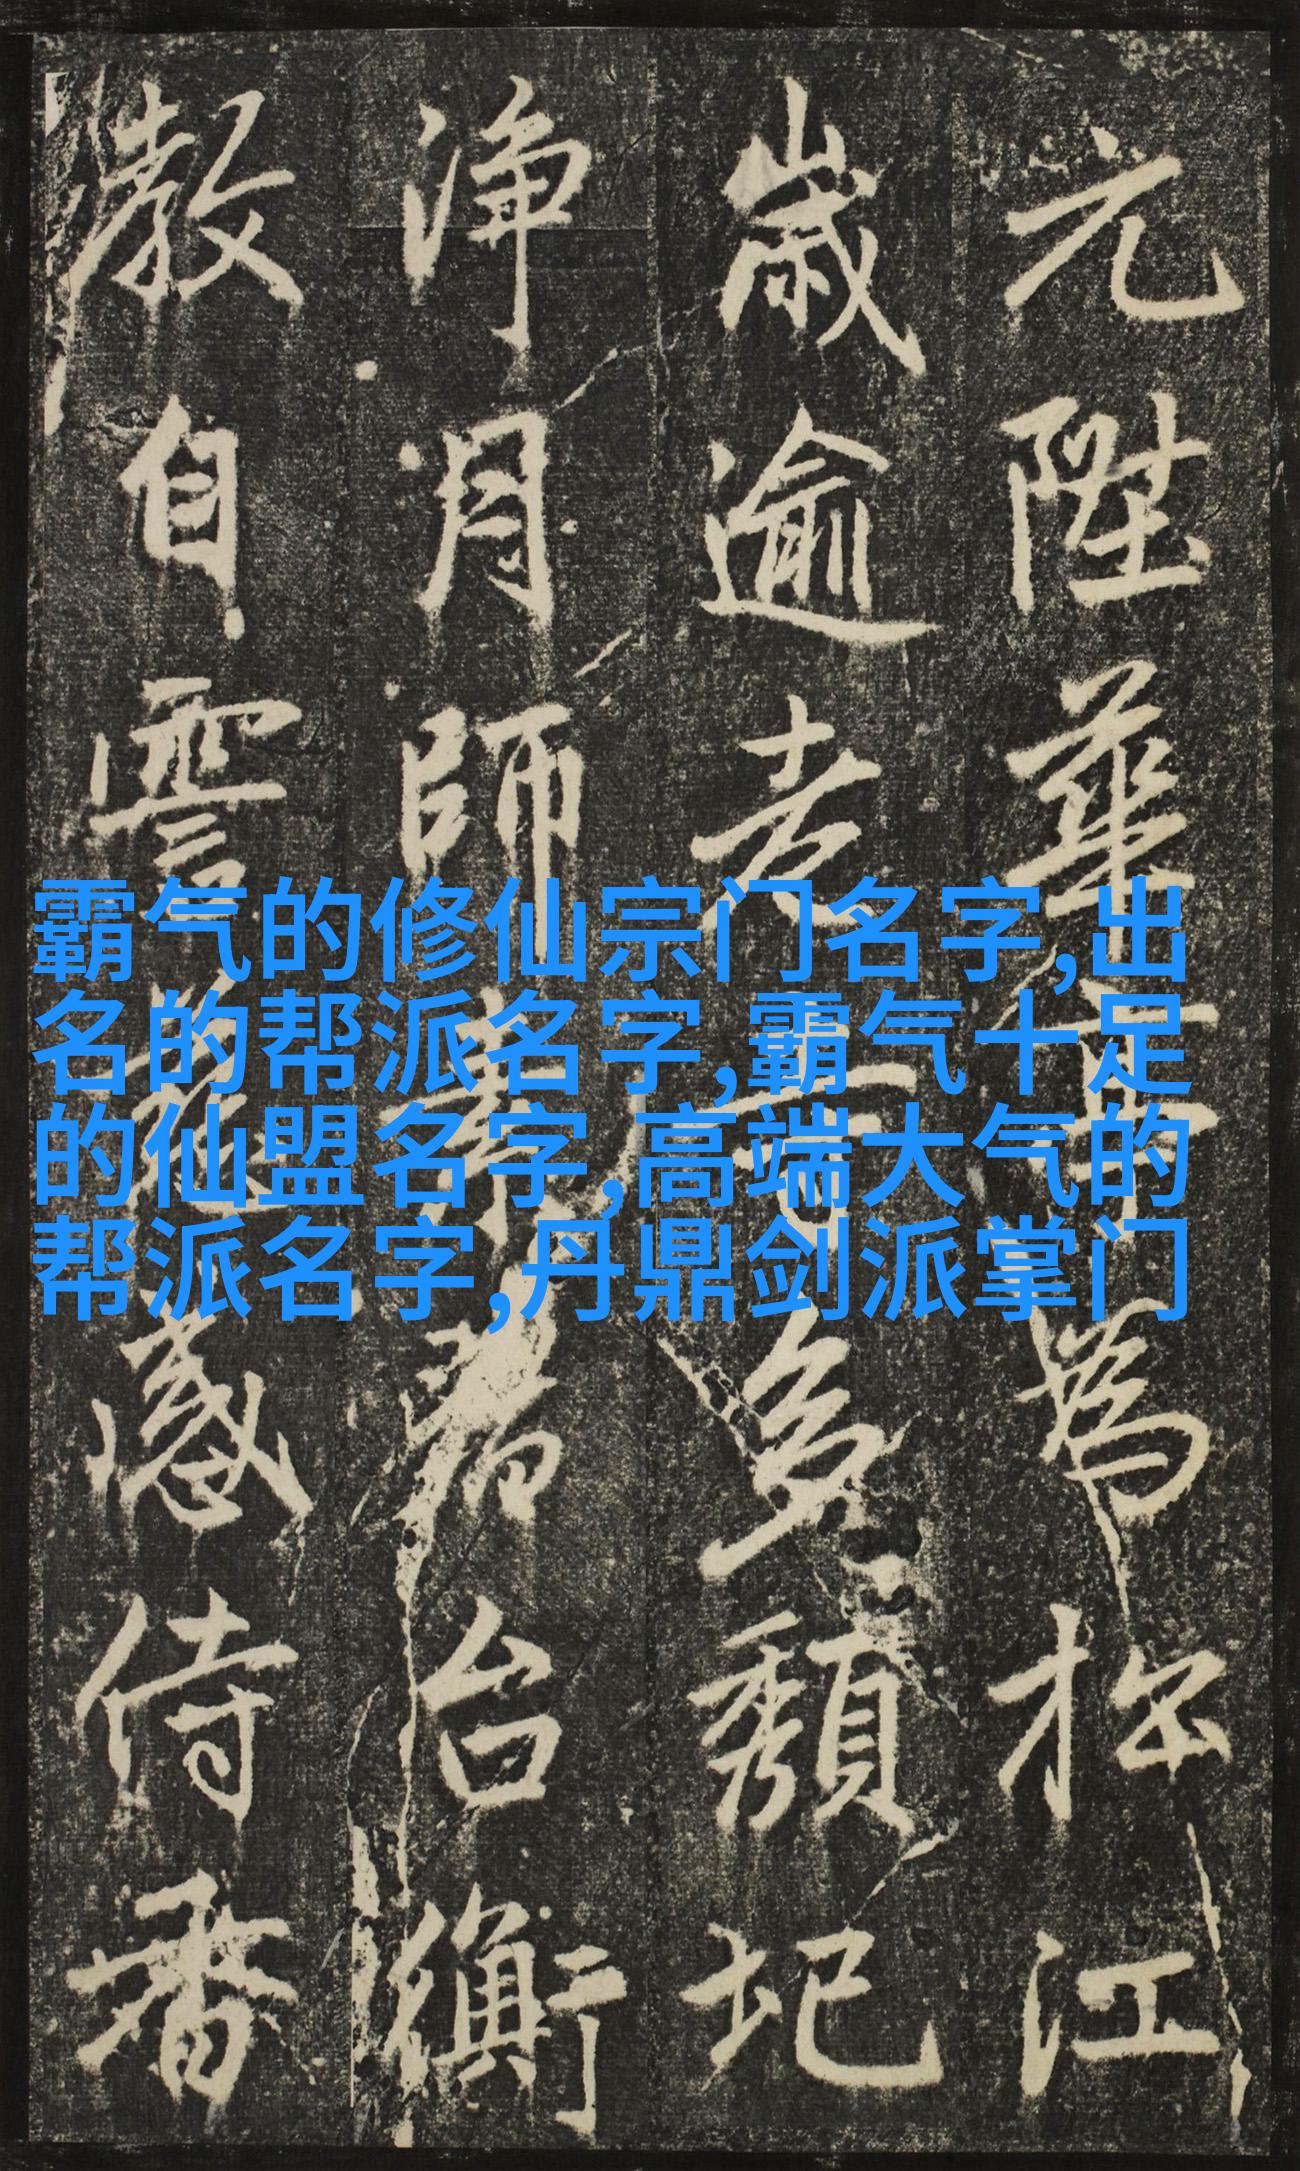 元陛華為於江
歲逾老多頹圮
淨月師台衡
教自感侍
霸气的修仙宗门名字,出
名的帮派名字,霸气十足
的仙盟名字,高端大气的
帮派名字,丹鼎剑派掌门